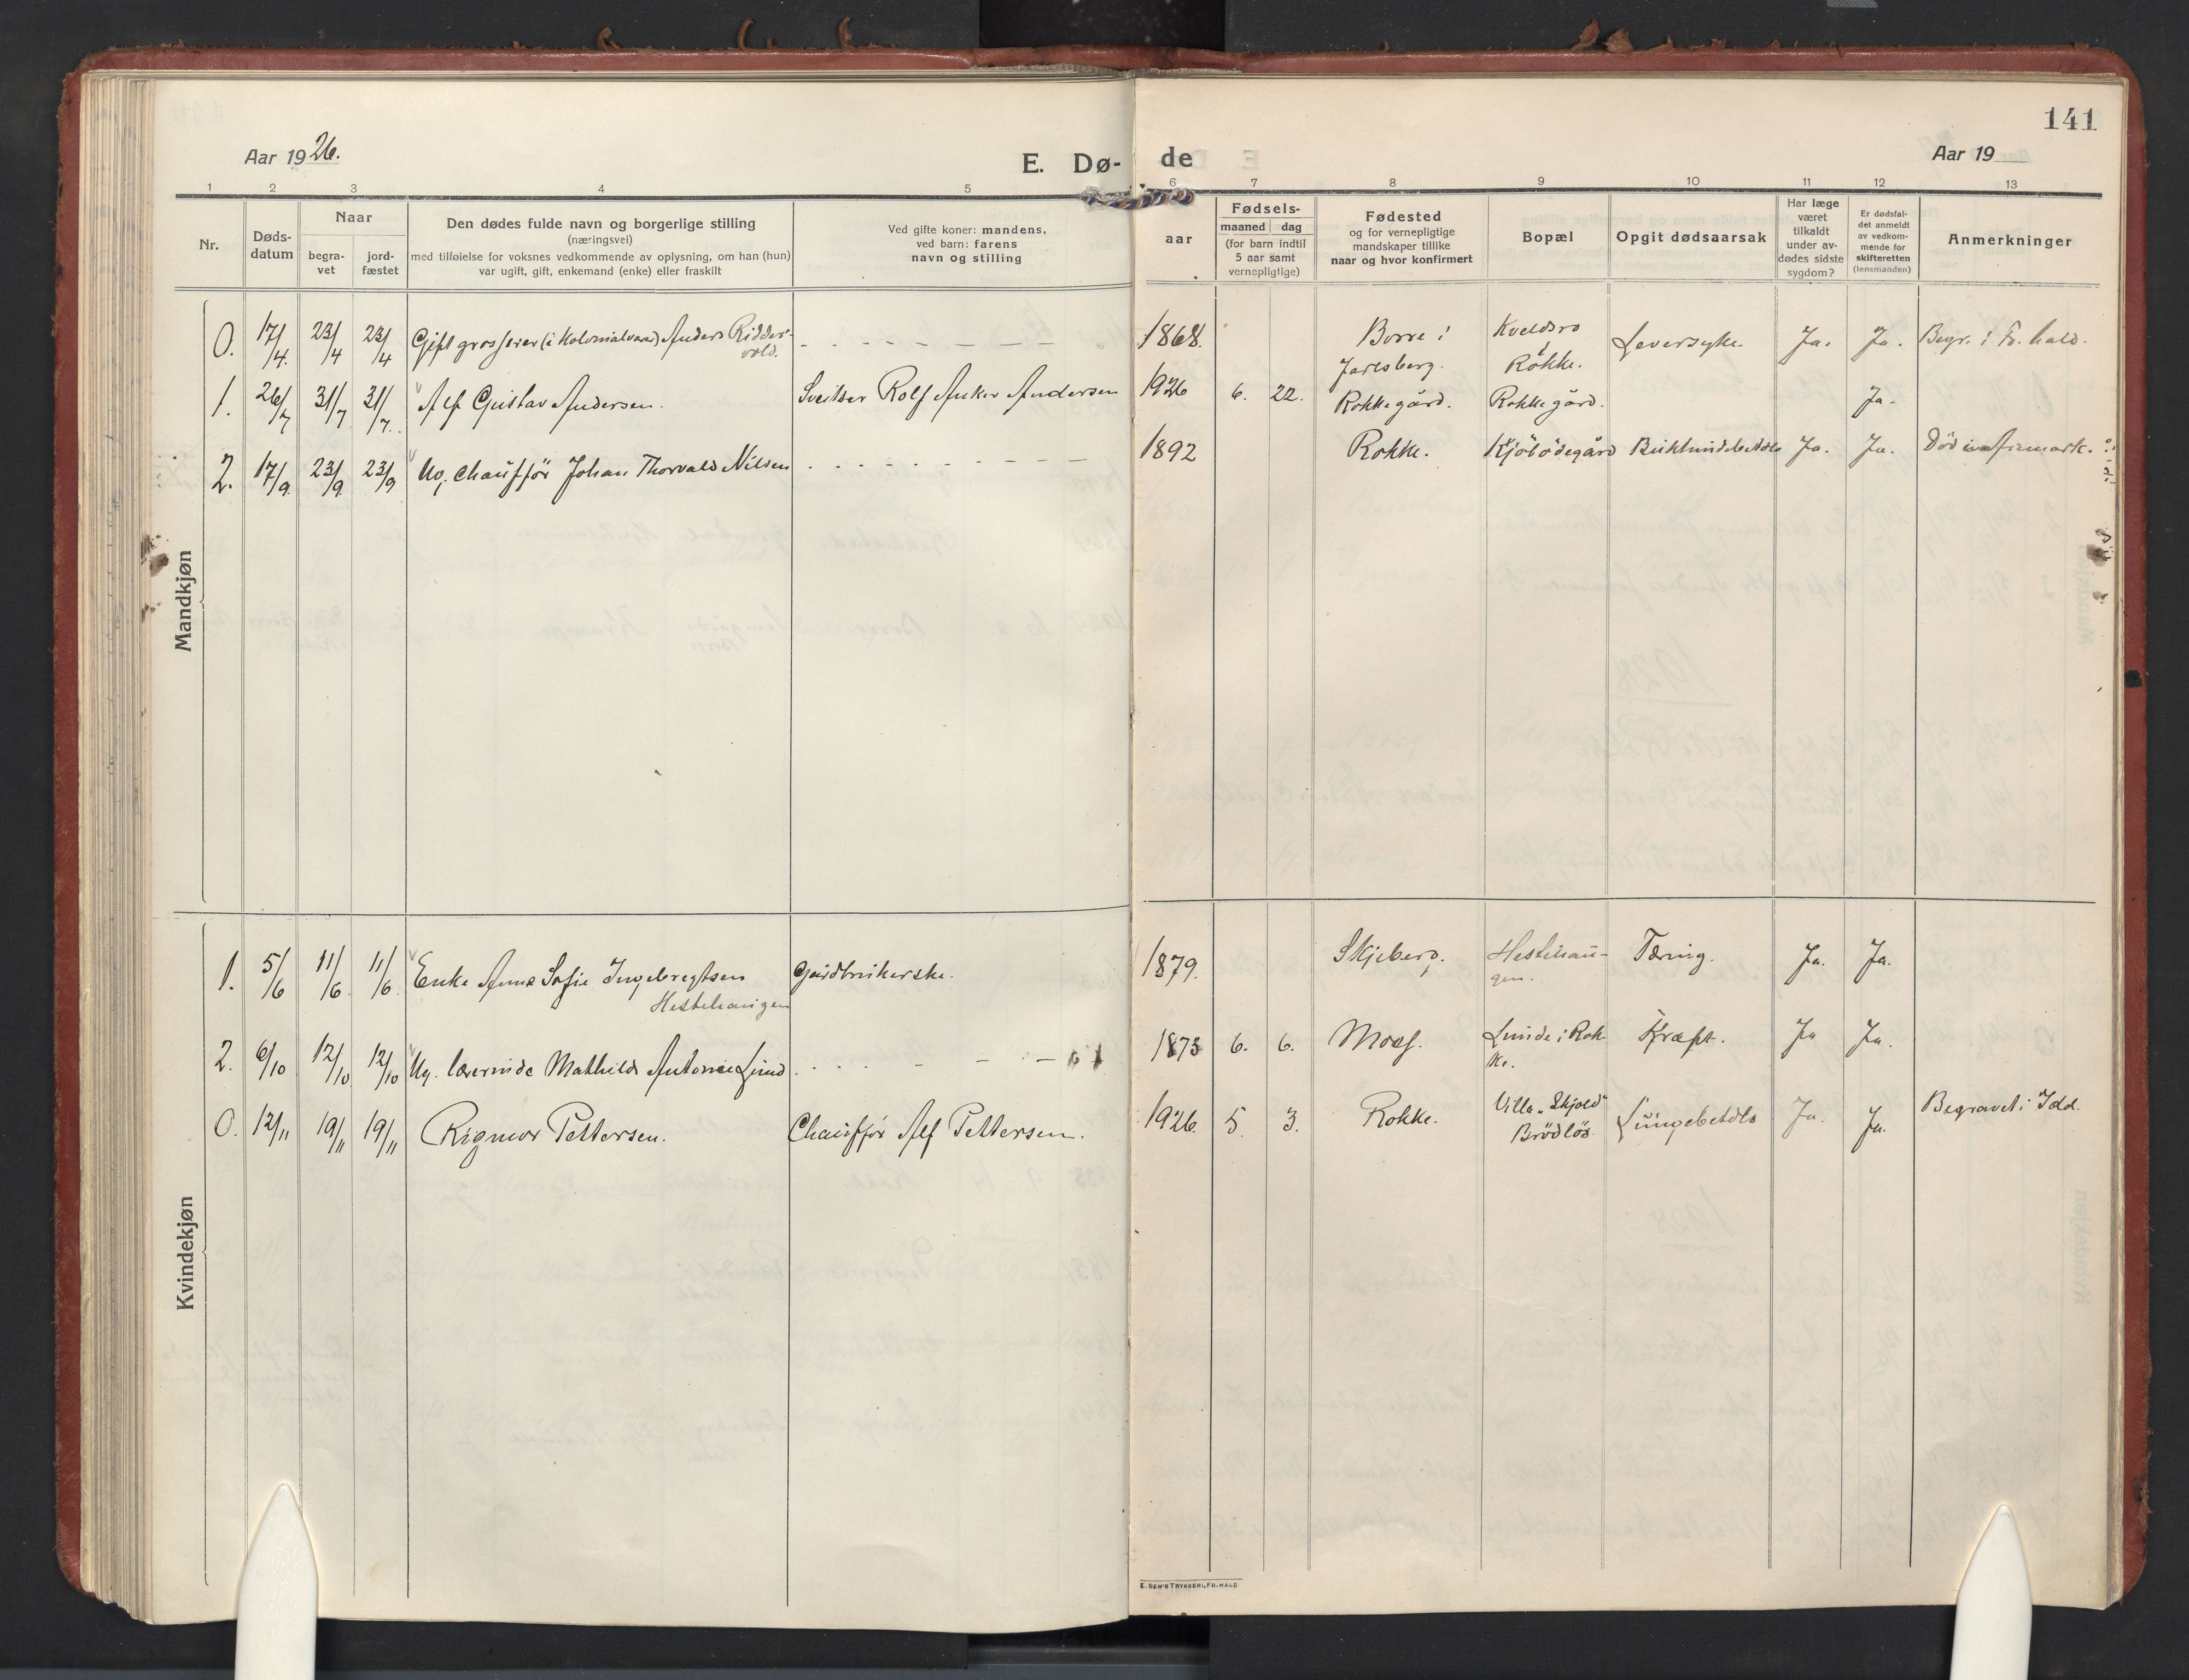 141
Aar 1926.
E. Dø- de
Aar 19
1 2 3 4 5 6 7 8 9 10 11 12 13
Nr.
Døds-
datum
Naar
begra-
vet
jord-
fæstet
Den dødes fulde navn og borgerlige stilling
(næringsvei)
med tilføielse for voksnes vedkommende av oplysning, om han (hun)
var ugift, gift, enkemand (enke) eller fraskilt
Ved gifte koner: mandens,
ved barn: farens
navn og stilling
aar
Fødsels-
maaned dag
(for barn indtil
5 aar samt
vernepligtige)
Fødested
og for vernepligtige
mandskaper tillike
naar og hvor konfirmert
Bopæl
Opgit dødsaarsak
Har læge
været
tilkaldt
under av-
dødes sidste
sygdom?
Er dødsfal-
det anmeldt
av vedkom-
mende for
skifteretten
(lensmanden)
Anmerkninger
Mandkjøn
0. 17/4. 23/4 23/4 Gift grosserer (i Kolonialvarer) Anders Ridder-
vold. - - - - - - - - 1868. Borre i
Jarlsberg. Kveldsro
i
Rokke. Leversyke Ja. Ja. Begr. i Fr.hald.
1. 26/7 31/7 31/7. Alf Gustav Andersen. Sveitser Rolf Anker Andersen 1926 6. 22. Rokkegård. Rokkegård. Ja.
2. 17/9 23/9 23/9 Ug. chauffør Johan Thorvald Nilsen - - - - - - - - 1892 Rokke. Kjöbödegård Ja. Ja. Død
Kvindekjøn
1. 5/6 11/6 11/6. Enke Anna Sofie Ingebregtsen
Hestehaugen Gårdbrukerske. 1879. Skjeberg. Hestehau-
gen. Tæring. Ja. Ja.
2. 6/10 12/10 12/10 Ug. lærerinde Mathilde Antonie Lund - - - 1873 6. 6. Moss. Lunde i Rok-
ke. Kræft. Ja Ja.
0. 12/11 19/11 19/11 Rigmor Pettersen. Chauffør Alf Pettersen. 1926. 5. 3. Rokke. Villa "Skjold"
Brödlös. Lungebetdls Ja. Ja. Begravet i Idd.
E. SEM'S TRYKKERI, FR.HALD